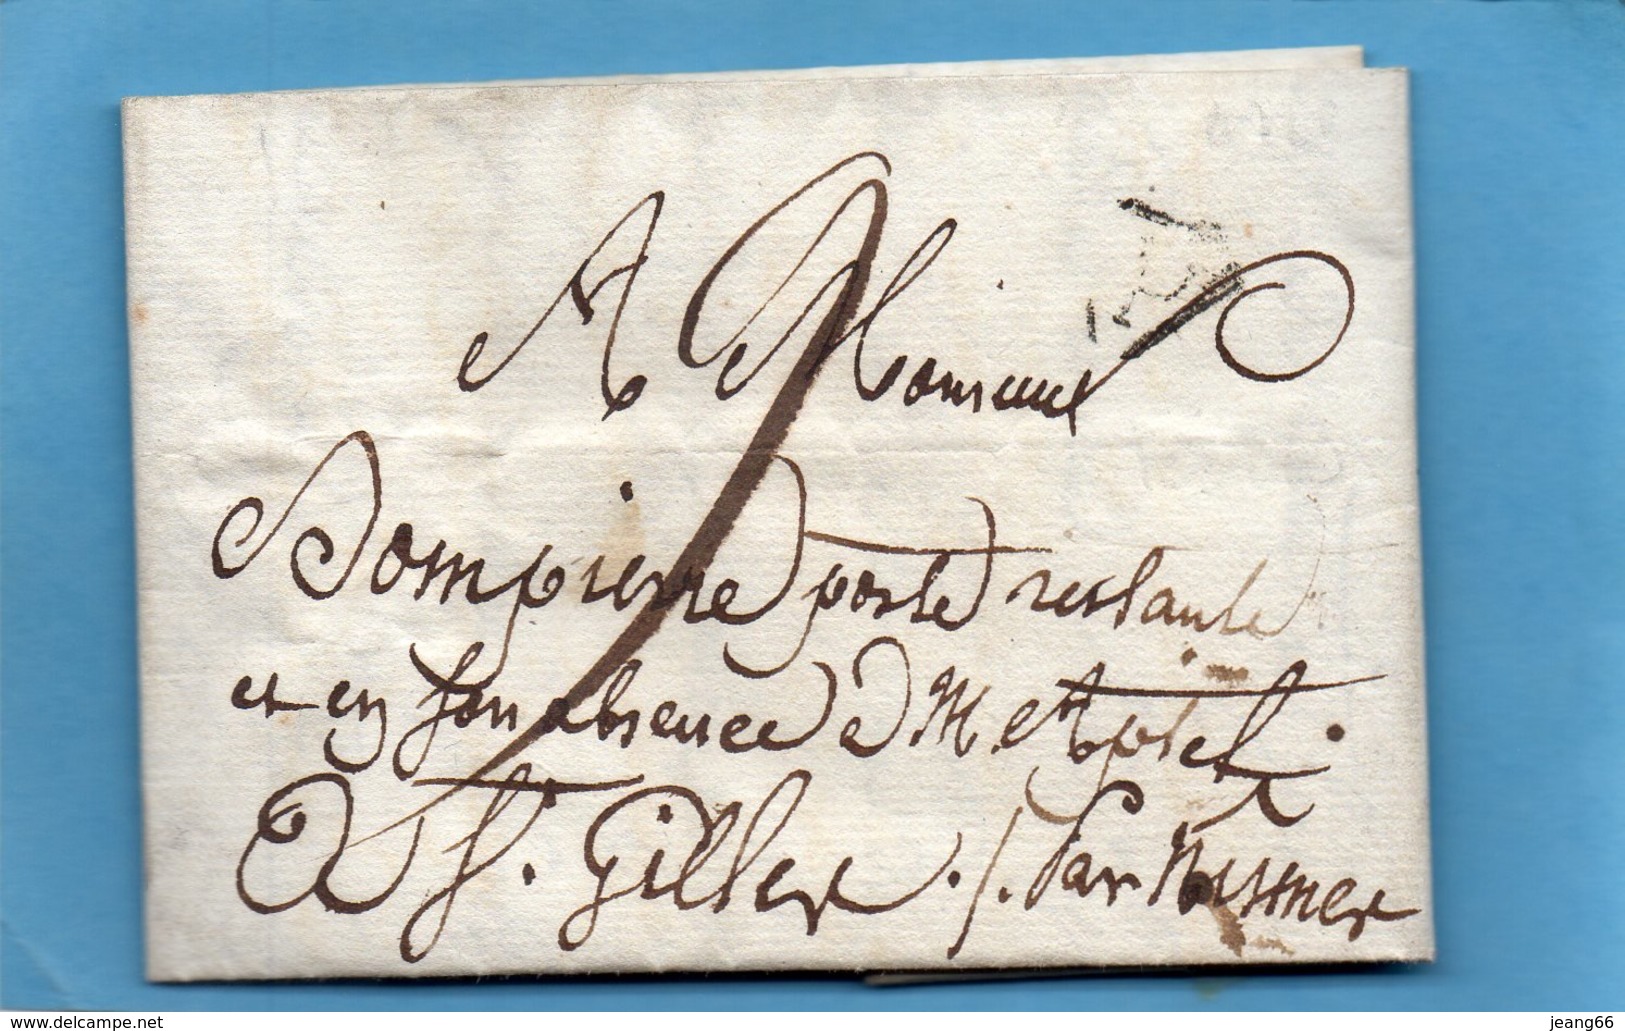 A Monsieur
Dompierre poste restante
et en son absence à M. Aphel
à St. Gilles ./. Par Nismes
www.delcampe.net
jeang66